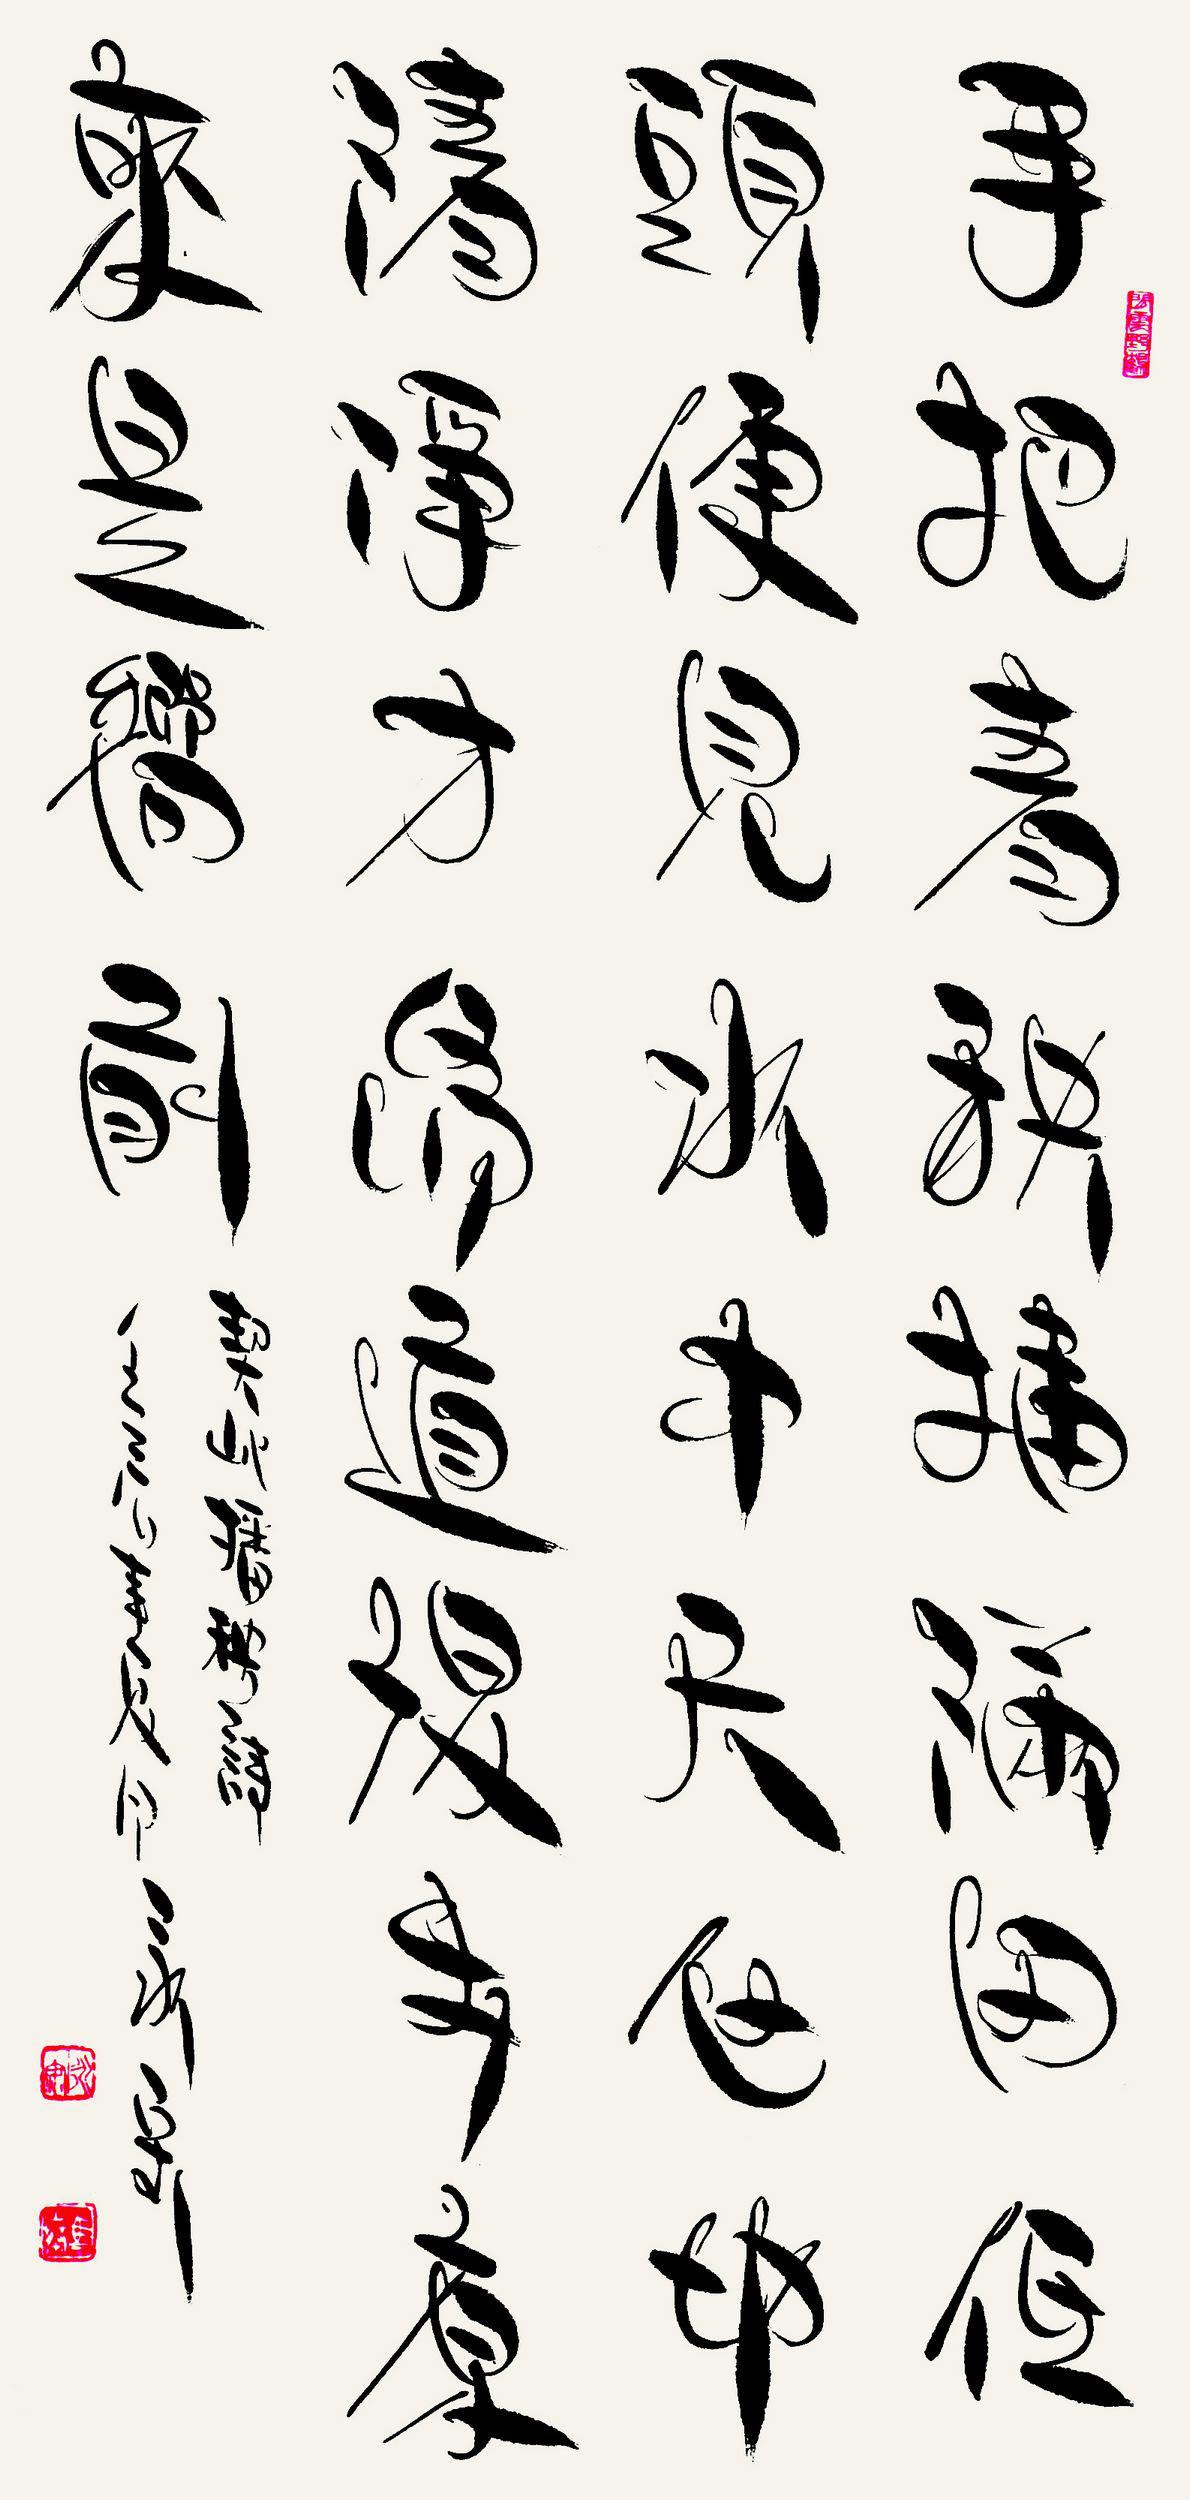 手把青秧插滿田低
頭便見水中天心地
清淨方為道退步原
來是嚮前
契此插秧